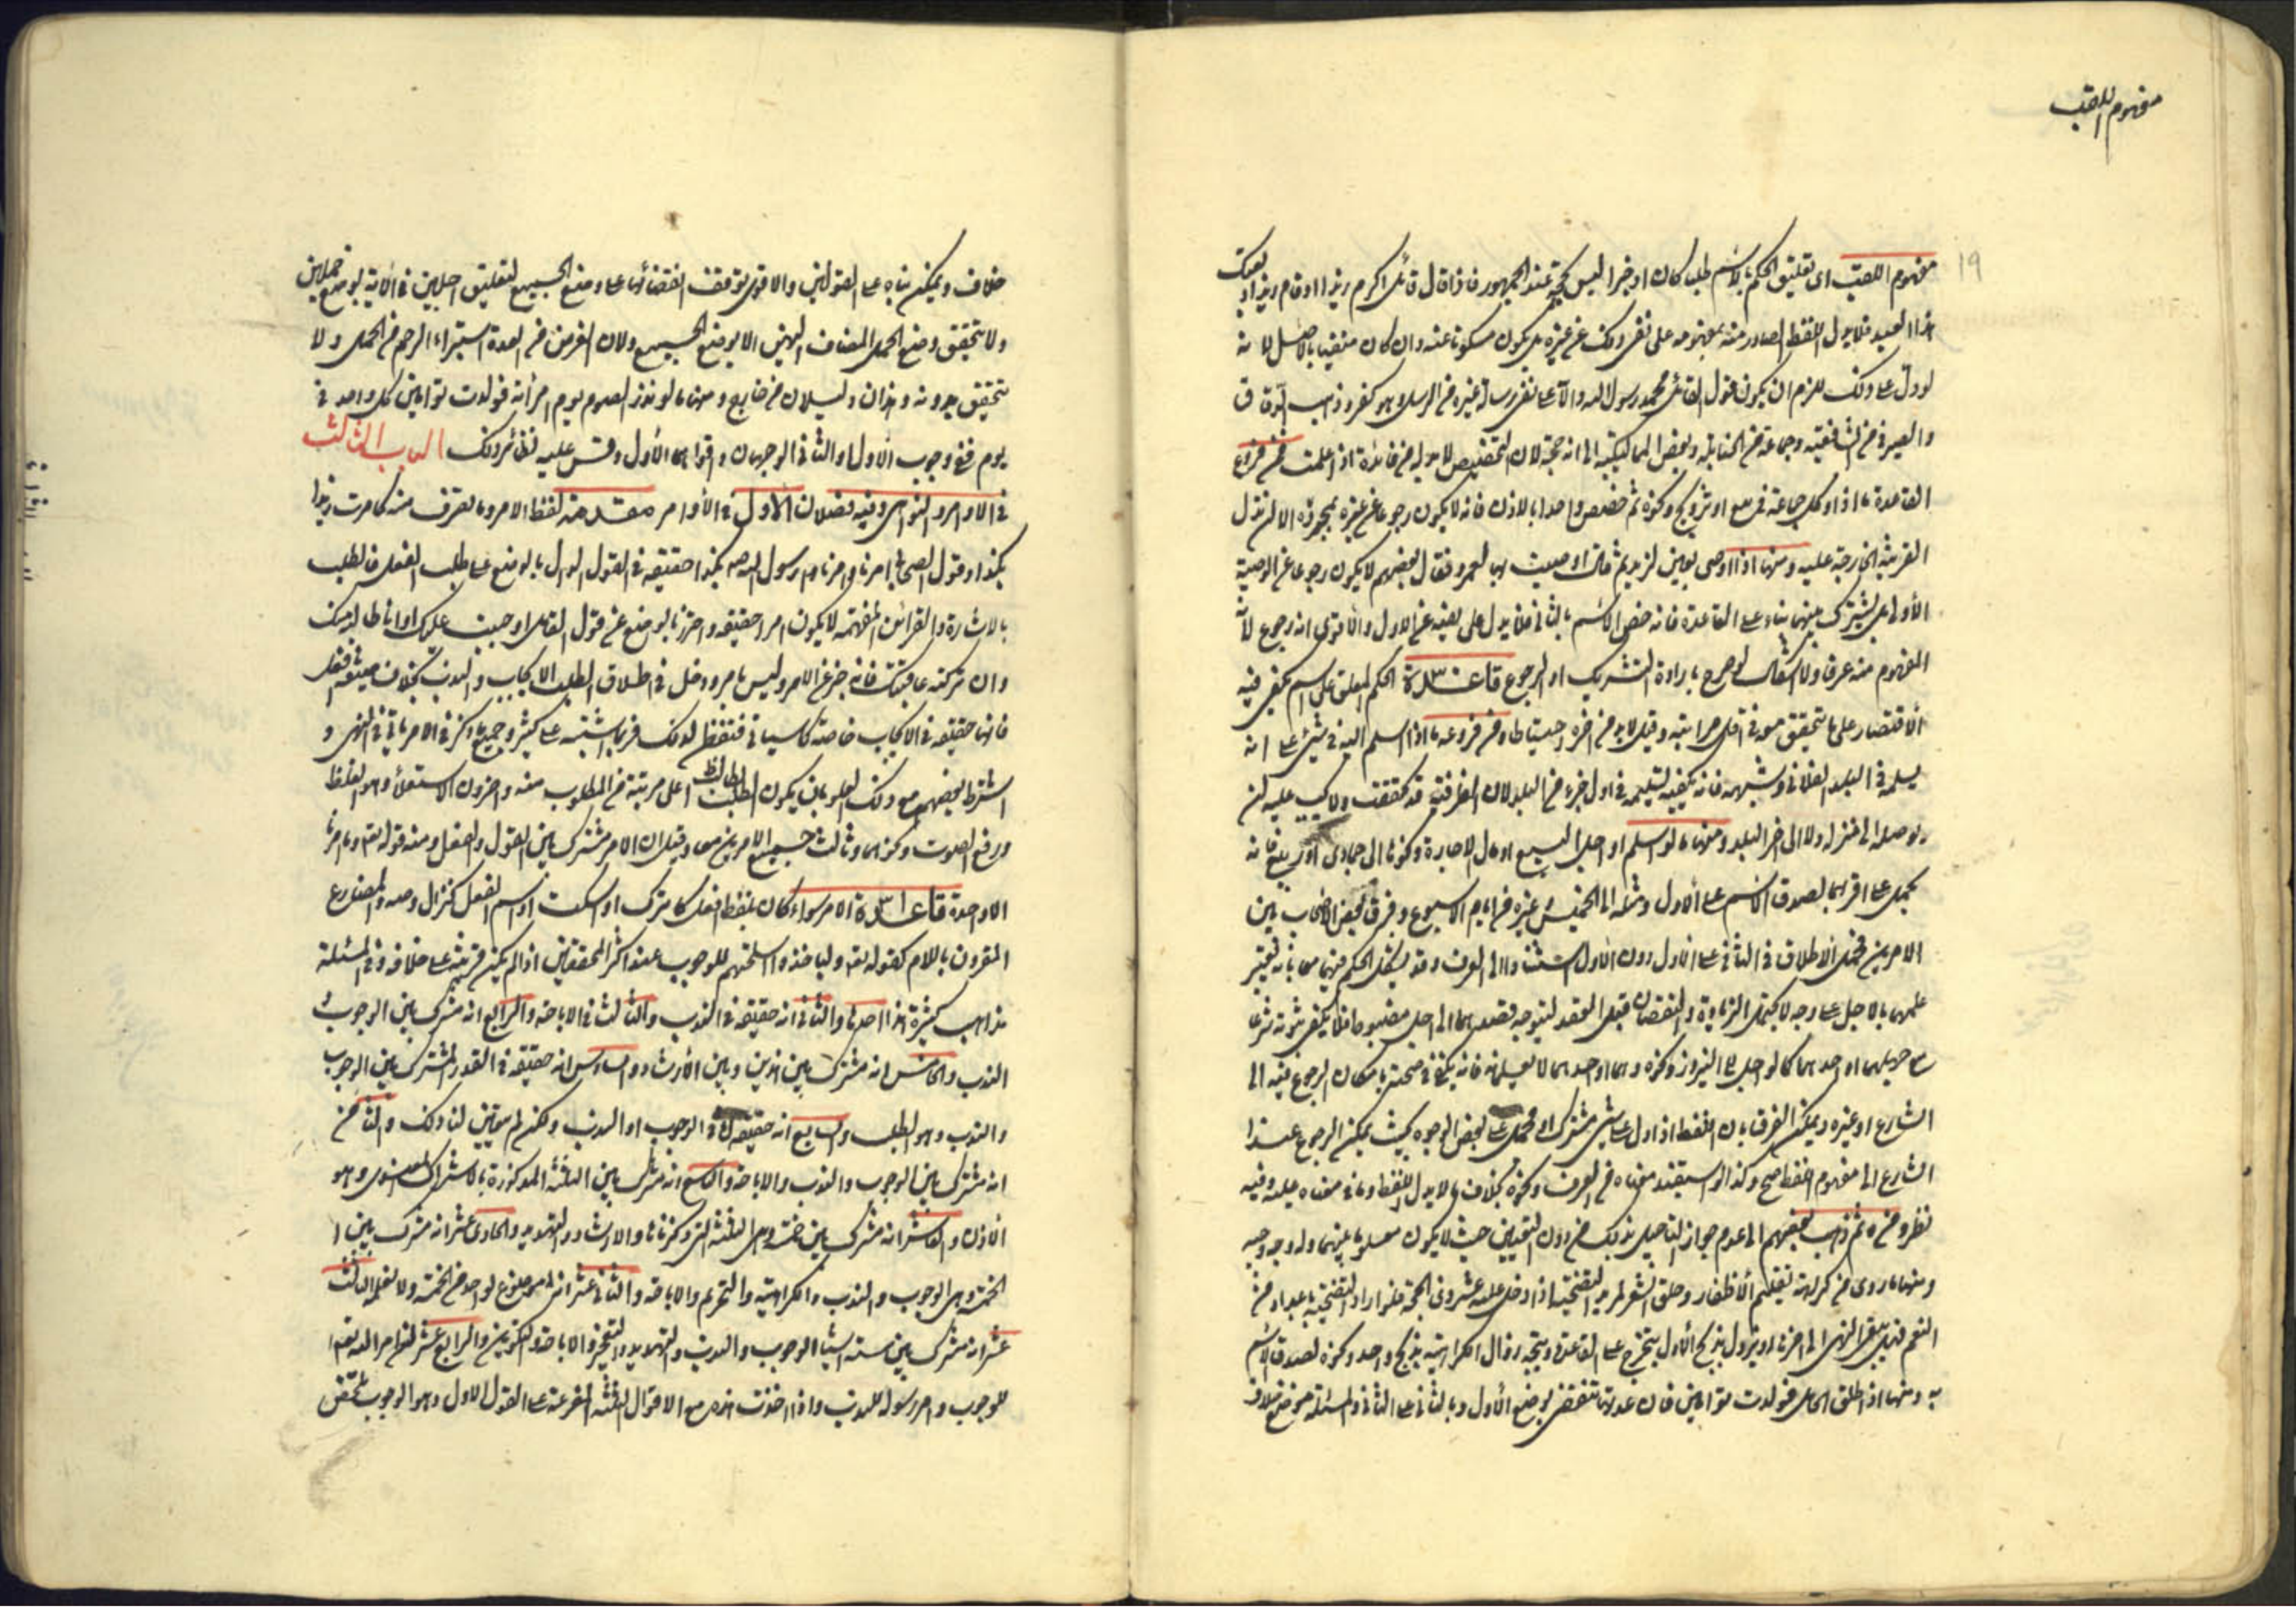 مفهوم اللقب
١٩
مفهوم اللقب اى تعليق الحكم بالاسم طلبا كان او خبرا ليس بحجة عند الجمهور فاذا قال قائل اكرم زيدا او قام زيد او بعتك
هذا العبد فلا يدل اللفظ الصادر منه بمفهومه على نفى ذلك عن غيره بل يكون مسكوتا عنه وان كان منفيا بالاصل لانه
لو دل على ذلك للزم ان يكون قول القائل محمد رسول الله دالا على نفى رسالة غيره من الرسل وهو كفر وذهب الدقاق
والصيرفى من الشافعية وجماعة من الحنابلة وبعض المالكية الى انه حجة لان التخصيص لا بد له من فائدة اذا علمت فمن فروع
القاعدة ما اذا وكل جماعة فى بيع او تزويج ونحوه ثم خص واحدا بالاذن فانه لا يكون رجوعا عن غيره بمجرده الا ان تدل
القرينة الخارجة عليه ومنها اذا اوصى بعين لزيد ثم قال اوصيت بها لعمرو فقال بعضهم لا يكون رجوعا عن الوصية
الاولى بل يشترك بينهما بناء على القاعدة فانه خص الاسم بالثانى فلا يدل على نفيه عن الاول والاقوى انه رجوع لانه
المفهوم منه عرفا ولا اشكال لو صرح بارادة التشريك او الرجوع قاعدة الحكم المعلق على اسم يكفى فيه
الاقتصار على ما تحقق معه فى اقل مراتبه وقيل لا بد من آخره احتياطا ومن فروعه ما اذا اسلم اليه فى شئ على انه
يسلمه فى البلد الفلانى وشبهه فانه يكفيه تسليمه فى اول جزء من البلد لان الظرفية قد تحققت ولا يجب عليه ان
يوصله الى منزله ولا الى آخر البلد ومنها ما لو اسلم او اجل البيع او مال الاجارة ونحوها الى جمادى او ربيع فانه
يحمل على اقربهما لصدق الاسم على الاول ومثله الى الخميس وغيره من ايام الاسبوع وفرق بعض الاصحاب بين
الامرين فحمل الاطلاق فى الثانى على الاول دون الاول استنادا الى العرف وقد يشكل الحكم فيهما معا بانه يعتبر
علمهما بالاجل على وجه لا يحتمل الزيادة والنقصان قبل العقد ليتوجه قصدهما الى اجل مضبوط فلا يكفى ثبوته شرعا
مع جهلهما او احدهما كما لو اجل الى النيروز ونحوه وهما او احدهما لا يعلمانه فانه لا يكفى فى صحته بامكان الرجوع فيه الى
الشارع او غيره ويمكن الفرق بان اللفظ اذا دل على شئ مشترك او محمول على بعض الوجوه بحيث يمكن الرجوع عند
الشارع الى مفهوم اللفظ صح وكذا لو استفيد معناه من العرف ونحوه بخلاف ما لا يدل اللفظ وما فى معناه عليه وفيه
نظر ومن ثم ذهب بعضهم الى عدم جواز التأجيل بذلك من دون التعيين حيث لا يكون معلوما بينهما وله وجه وجيه
ومنها ما روى من كراهة تقليم الاظفار وحلق الشعر لمريد التضحية اذا دخل عليه عشر ذى الحجة فلو اراد التضحية باعداد من
النعم فهل يبقى النهى الى آخرها او يزول بذبح الاول يتخرج على القاعدة ويتجه زوال الكراهية بذبح واحد ونحوه لصدق الاسم
به ومنها اذا طلق الحامل فولدت توامين فان عدتها تنقضى بوضع الاول وبالثانى على الثانى والمسئلة موضع خلاف
خلاف ويمكن بناؤه على القولين والاقوى توقف انقضائها على وضع الجميع لتعليق اجلهن فى الآية بوضع حملهن
ولا يتحقق وضع الحمل المضاف اليهن الا بوضع الجميع ولان الغرض من العدة استبراء الرحم من الحمل ولا
يتحقق بدونه وهذان دليلان من خارج ومنها ما لو نذر الصوم يوم امرأته فولدت توامين كل واحد فى
يوم ففى وجوب الاول او الثانى الوجهان واقواهما الاول وقس عليه نظائر ذلك الباب الثالث
فى الاوامر والنواهى وفيه فصلان الاول فى الاوامر مقدمة لفظ الامر وما تصرف منه كامرت زيدا
بكذا وقول الصحابى امرنا وامرنا رسول الله صه بكذا حقيقة فى القول الدال بالوضع على طلب الفعل فالطلب
بالاشارة والقرائن المفهمة لا يكون امرا حقيقة واحترزنا بالوضع عن قول القائل اوجبت عليك او انا طالب منك
وان تركته عاقبتك فانه خبر عن الامر وليس بامر ودخل فى اطلاق الطلب الايجاب والندب بخلاف صيغة افعل
فانها حقيقة فى الايجاب خاصة كما سياتى فتفطن لذلك فربما اشتبه على كثير وجميع ما ذكر فى الامر ياتى فى النهى و
اشترط بعضهم مع ذلك العلو بان يكون الطالب اعلى مرتبة من المطلوب منه وآخرون الاستعلاء وهو الغلظ
ورفع الصوت ونحوهما وثالث جمع الامرين معا وقيل ان الامر مشترك بين القول والفعل ومنه قوله تعه وما امرنا
الا واحدة قاعدة الامر سواء كان بلفظ افعل كاترك او اسكت او اسم الفعل كنزال وصه والمضارع
المقرون باللام كقوله تعه ولياخذوا اسلحتهم للوجوب عند اكثر المحققين اذا لم يكن قرينة على خلافه وفى المسئلة
مذاهب كثيرة هذا احدها والثانى انه حقيقة فى الندب والثالث فى الاباحة والرابع انه مشترك بين الوجوب و
الندب والخامس انه مشترك بين هذين وبين الارشاد والسادس انه حقيقة فى القدر المشترك بين الوجوب
والندب وهو الطلب والسابع انه حقيقة فى الوجوب او الندب ولكن لم يتعين لنا ذلك والثامن
انه مشترك بين الوجوب والندب والاباحة والتاسع انه مشترك بين الثلثة المذكورة بالاشتراك المعنوى وهو
الاذن والعاشر انه مشترك بين خمسة وهى الثلثة التى ذكرناها والارشاد والتهديد والحادى عشر انه مشترك بين ا
الخمسة وهى الوجوب والندب والكراهية والتحريم والاباحة والثانى عشر انه موضوع لواحد من الخمسة ولا نعلمه الثالث
عشر انه مشترك بين ستة اشيا الوجوب والندب والتهديد والتعجيز والاباحة والتكوين والرابع عشر ان امر الله تعه
للوجوب وامر رسوله للندب واذا اخذت هذه مع الاقوال الثلثة المفرعة على القول الاول وهو الوجوب